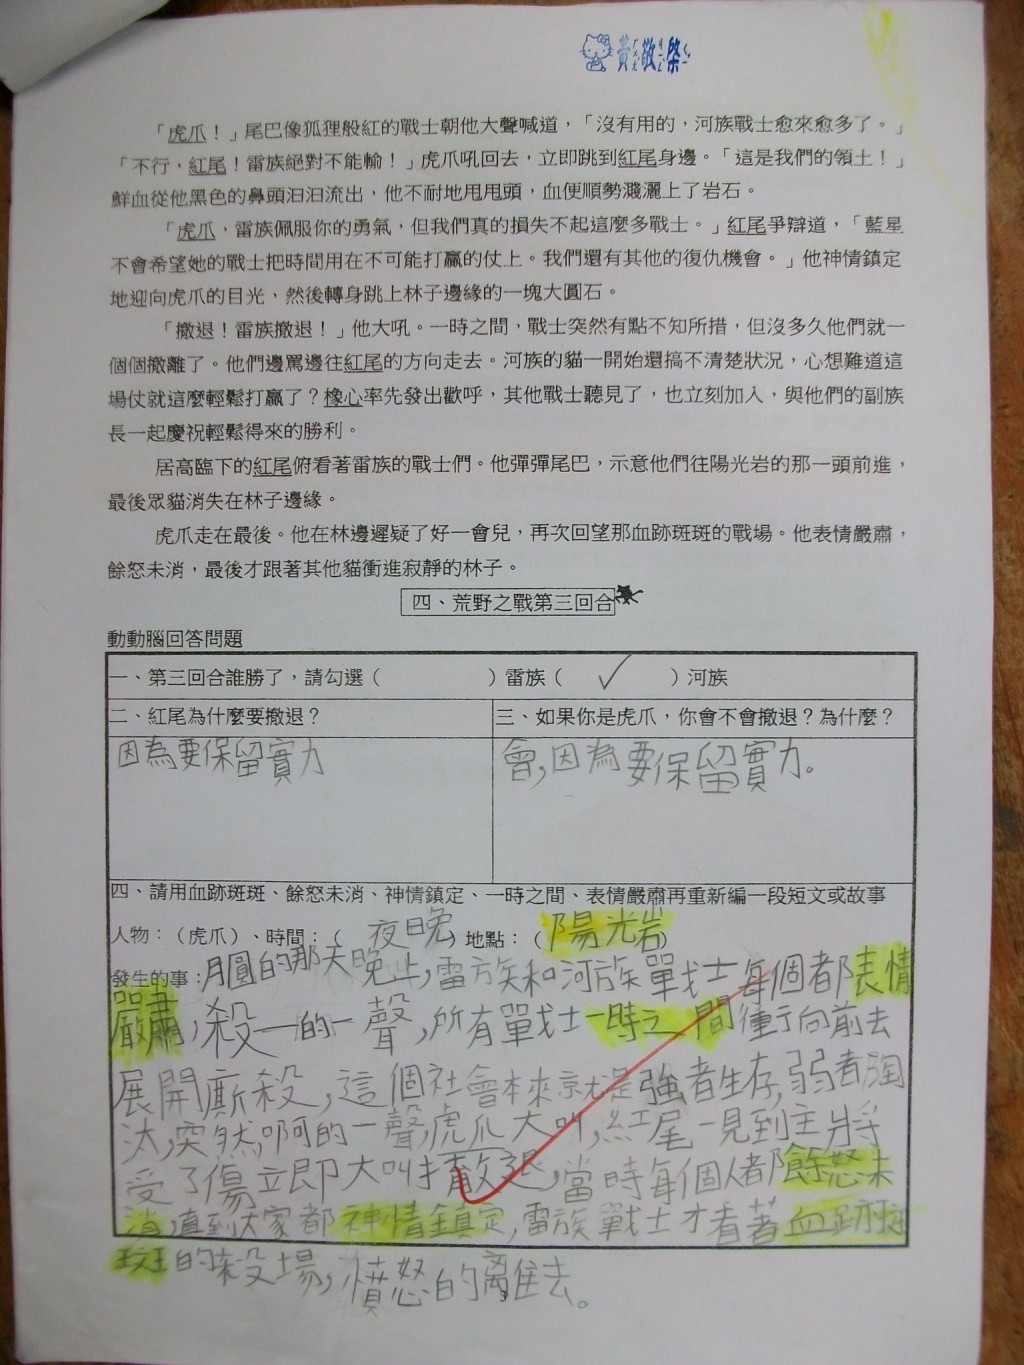 黃敬棨
「虎爪！」尾巴像狐狸般紅的戰士朝他大聲喊道，「沒有用的，河族戰士愈來愈多了。」
「不行，紅尾！雷族絕對不能輸！」虎爪吼回去，立即跳到紅尾身邊。「這是我們的領土！」
鮮血從他黑色的鼻頭汩汩流出，他不耐地甩甩頭，血便順勢濺灑上了岩石。
「虎爪，雷族佩服你的勇氣，但我們真的損失不起這麼多戰士。」紅尾爭辯道，「藍星
不會希望她的戰士把時間用在不可能打贏的仗上。我們還有其他的復仇機會。」他神情鎮定
地迎向虎爪的目光，然後轉身跳上林子邊緣的一塊大圓石。
「撤退！雷族撤退！」他大吼。一時之間，戰士突然有點不知所措，但沒多久他們就一
個個撤離了。他們邊罵邊往紅尾的方向走去。河族的貓一開始還搞不清楚狀況，心想難道這
場仗就這麼輕鬆打贏了？橡心率先發出歡呼，其他戰士聽見了，也立刻加入，與他們的副族
長一起慶祝輕鬆得來的勝利。
居高臨下的紅尾俯看著雷族的戰士們。他彈彈尾巴，示意他們往陽光岩的那一頭前進，
最後眾貓消失在林子邊緣。
虎爪走在最後。他在林邊遲疑了好一會兒，再次回望那血跡斑斑的戰場。他表情嚴肅，
餘怒未消，最後才跟著其他貓衝進寂靜的林子。
四、荒野之戰第三回合
動動腦回答問題
一、第三回合誰勝了，請勾選（ ）雷族（ ✓ ）河族
二、紅尾為什麼要撤退？ 三、如果你是虎爪，你會不會撤退？為什麼？
因為要保留實力 會,因為要保留實力。
四、請用血跡斑斑、餘怒未消、神情鎮定、一時之間、表情嚴肅再重新編一段短文或故事
人物：（虎爪）、時間：（ 夜晚 ）地點：（陽光岩）
發生的事：月圓的那天晚上,雷族和河族單戈士每個都表情
嚴肅,殺─的一聲,所有單戈士一時之間衝向前去
展開廝殺,這個社會本來就是強者生存,弱者淘
汰,突然,啊的一聲,虎爪大叫,紅尾一見到主將
受了傷立即大叫撤退,當時每個人都餘怒未
消,直到大家都神情鎮定,雷族戰士才看著血跡斑
斑的殺場,憤怒的離去。